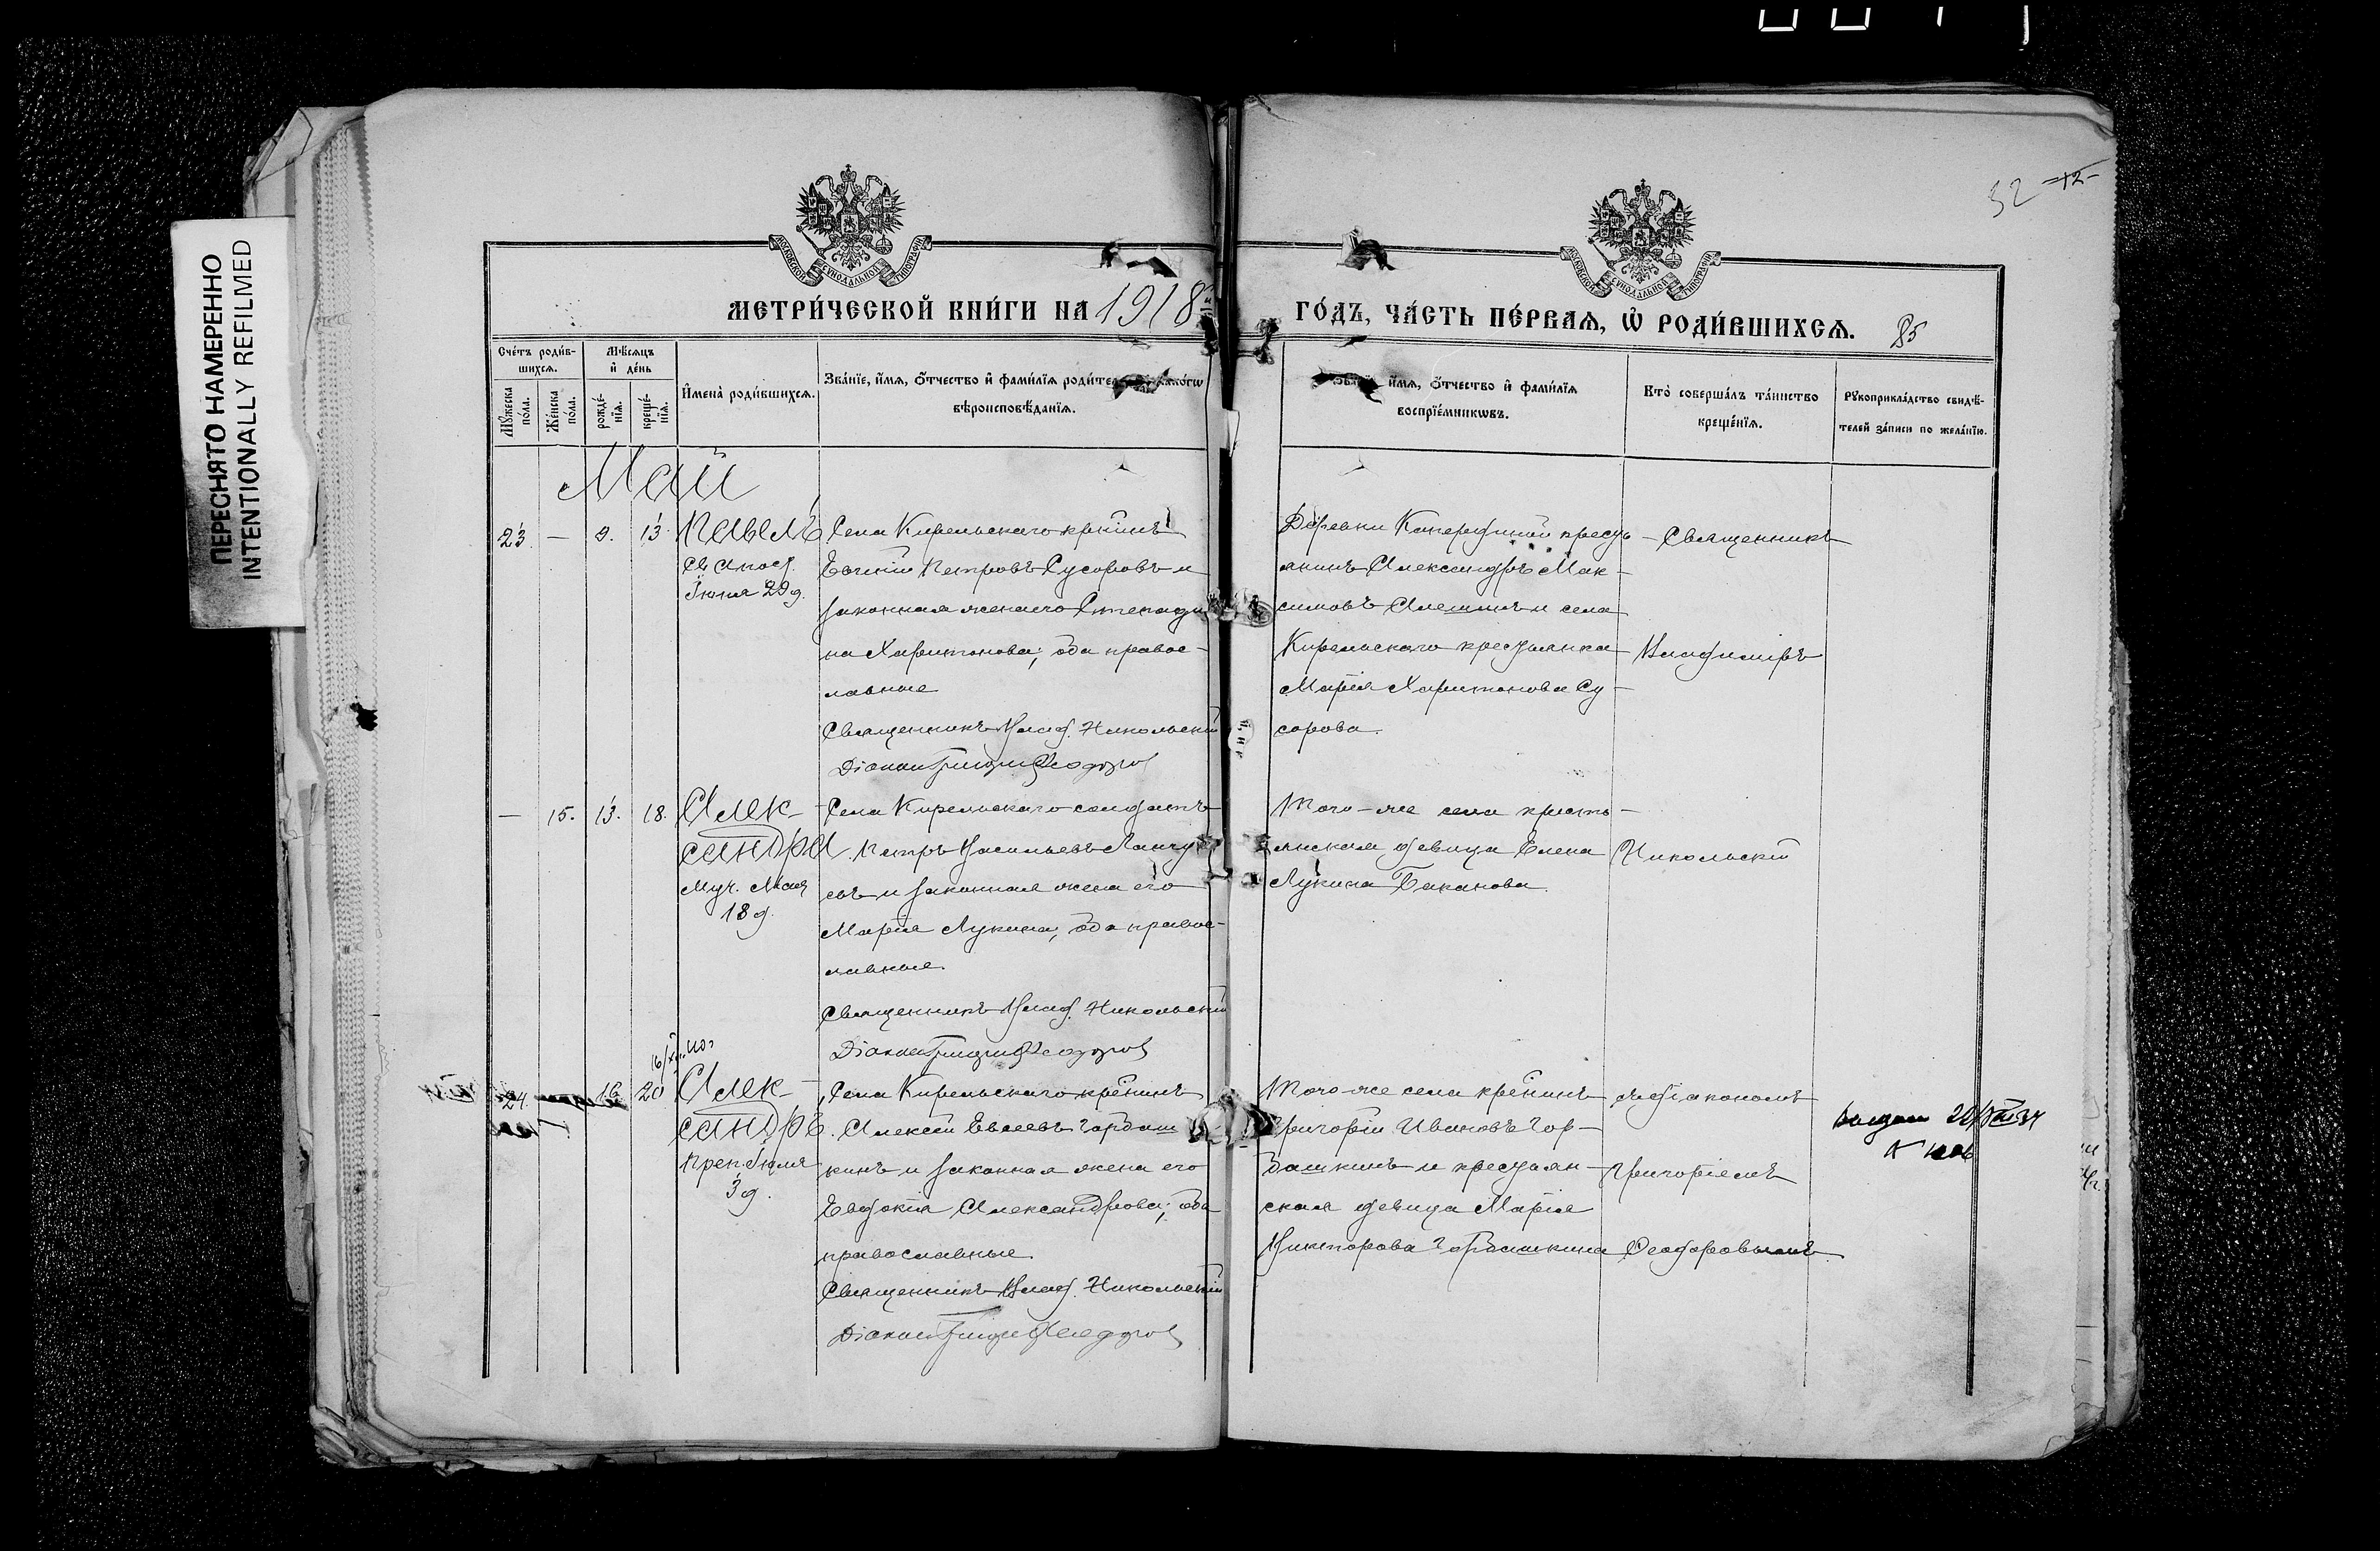 ПЕРЕСНЯТО НАМЕРЕННО
INTENTIONALLY REFILMED
32 12
МОСКОВСКОЙ СѴНОДАЛЬНОЙ ТИПОГРАФІИ
МОСКОВСКОЙ СѴНОДАЛЬНОЙ ТИПОГРАФІИ
МЕТРИ́ЧЕСКОЙ КНИ́ГИ НА 1918й
ГО́ДЪ, ЧА́СТЬ ПЕ́РВАѦ, Ѡ҆ РОДИ́ВШИХСѦ. 85
Сче́тъ роди́в-
шихсѧ.
Мꙋ́жеска
по́ла.
Же́нска
по́ла.
Мѣ́сѧцъ
и҆ де́нь
рожде́-
нїѧ.
креще́-
нїѧ.
И҆мена̀ роди́вшихсѧ.
Зва́нїе, и҆́мѧ, ѻ҆́тчество и҆ фами́лїѧ роди́тел како́гѡ
вѣроисповѣ́данїѧ.
и҆́мѧ, ѻ҆́тчество и҆ фами́лїѧ
воспрїе́мникѡвъ.
Кто̀ соверша́лъ та́инство
креще́нїѧ.
Рꙋкоприкла́дство свидѣ́-
телей за́писи по жела́нїю.
Май
23. — 9. 13. Павелъ
Св. Апост.
Іюня 29 д.
Села Кирельскаго кр–нинъ
Евгеній Петровъ Сусоровъ и
законная жена его Степанида
на Харитонова; оба правос-
лавные
Священникъ Влад. Никольскій
Діаконъ Григорій Ѳеодоровъ
Деревни крестья-
нинъ Александръ Мак-
симовъ Алешинъ и села
Кирельскаго крестьянка
Марія Харитонова Су-
сорова.
Священникъ
Владиміръ
— 15. 13. 18. Алек-
сандра
Муч. Мая
18 д.
Села Кирельскаго солдатъ
Петръ Васильевъ
евъ и законная жена его
Марія Лукина, оба правос-
лавные.
Священникъ Влад. Никольскій
Діаконъ Григорій Ѳеодоровъ
Того-же села кресть-
янская девица Елена
Лукина Баканова.
Никольскій
24. 16 20 Алек-
сандръ
Преп. Іюля
3 д.
Села Кирельскаго кр–нинъ
Алексій Евсеевъ Гордаш
кинъ и законная жена его
Евдокія Александрова; оба
православные.
Священникъ Влад. Никольскій
Діаконъ Григорій Ѳеодоровъ
Того-же села кр–нинъ
Григорій Ивановъ Гор-
дашкинъ и крестьян-
ская девица Марія
Викторова Гордашкина
діакономъ
Григоріемъ
Ѳеодоровымъ